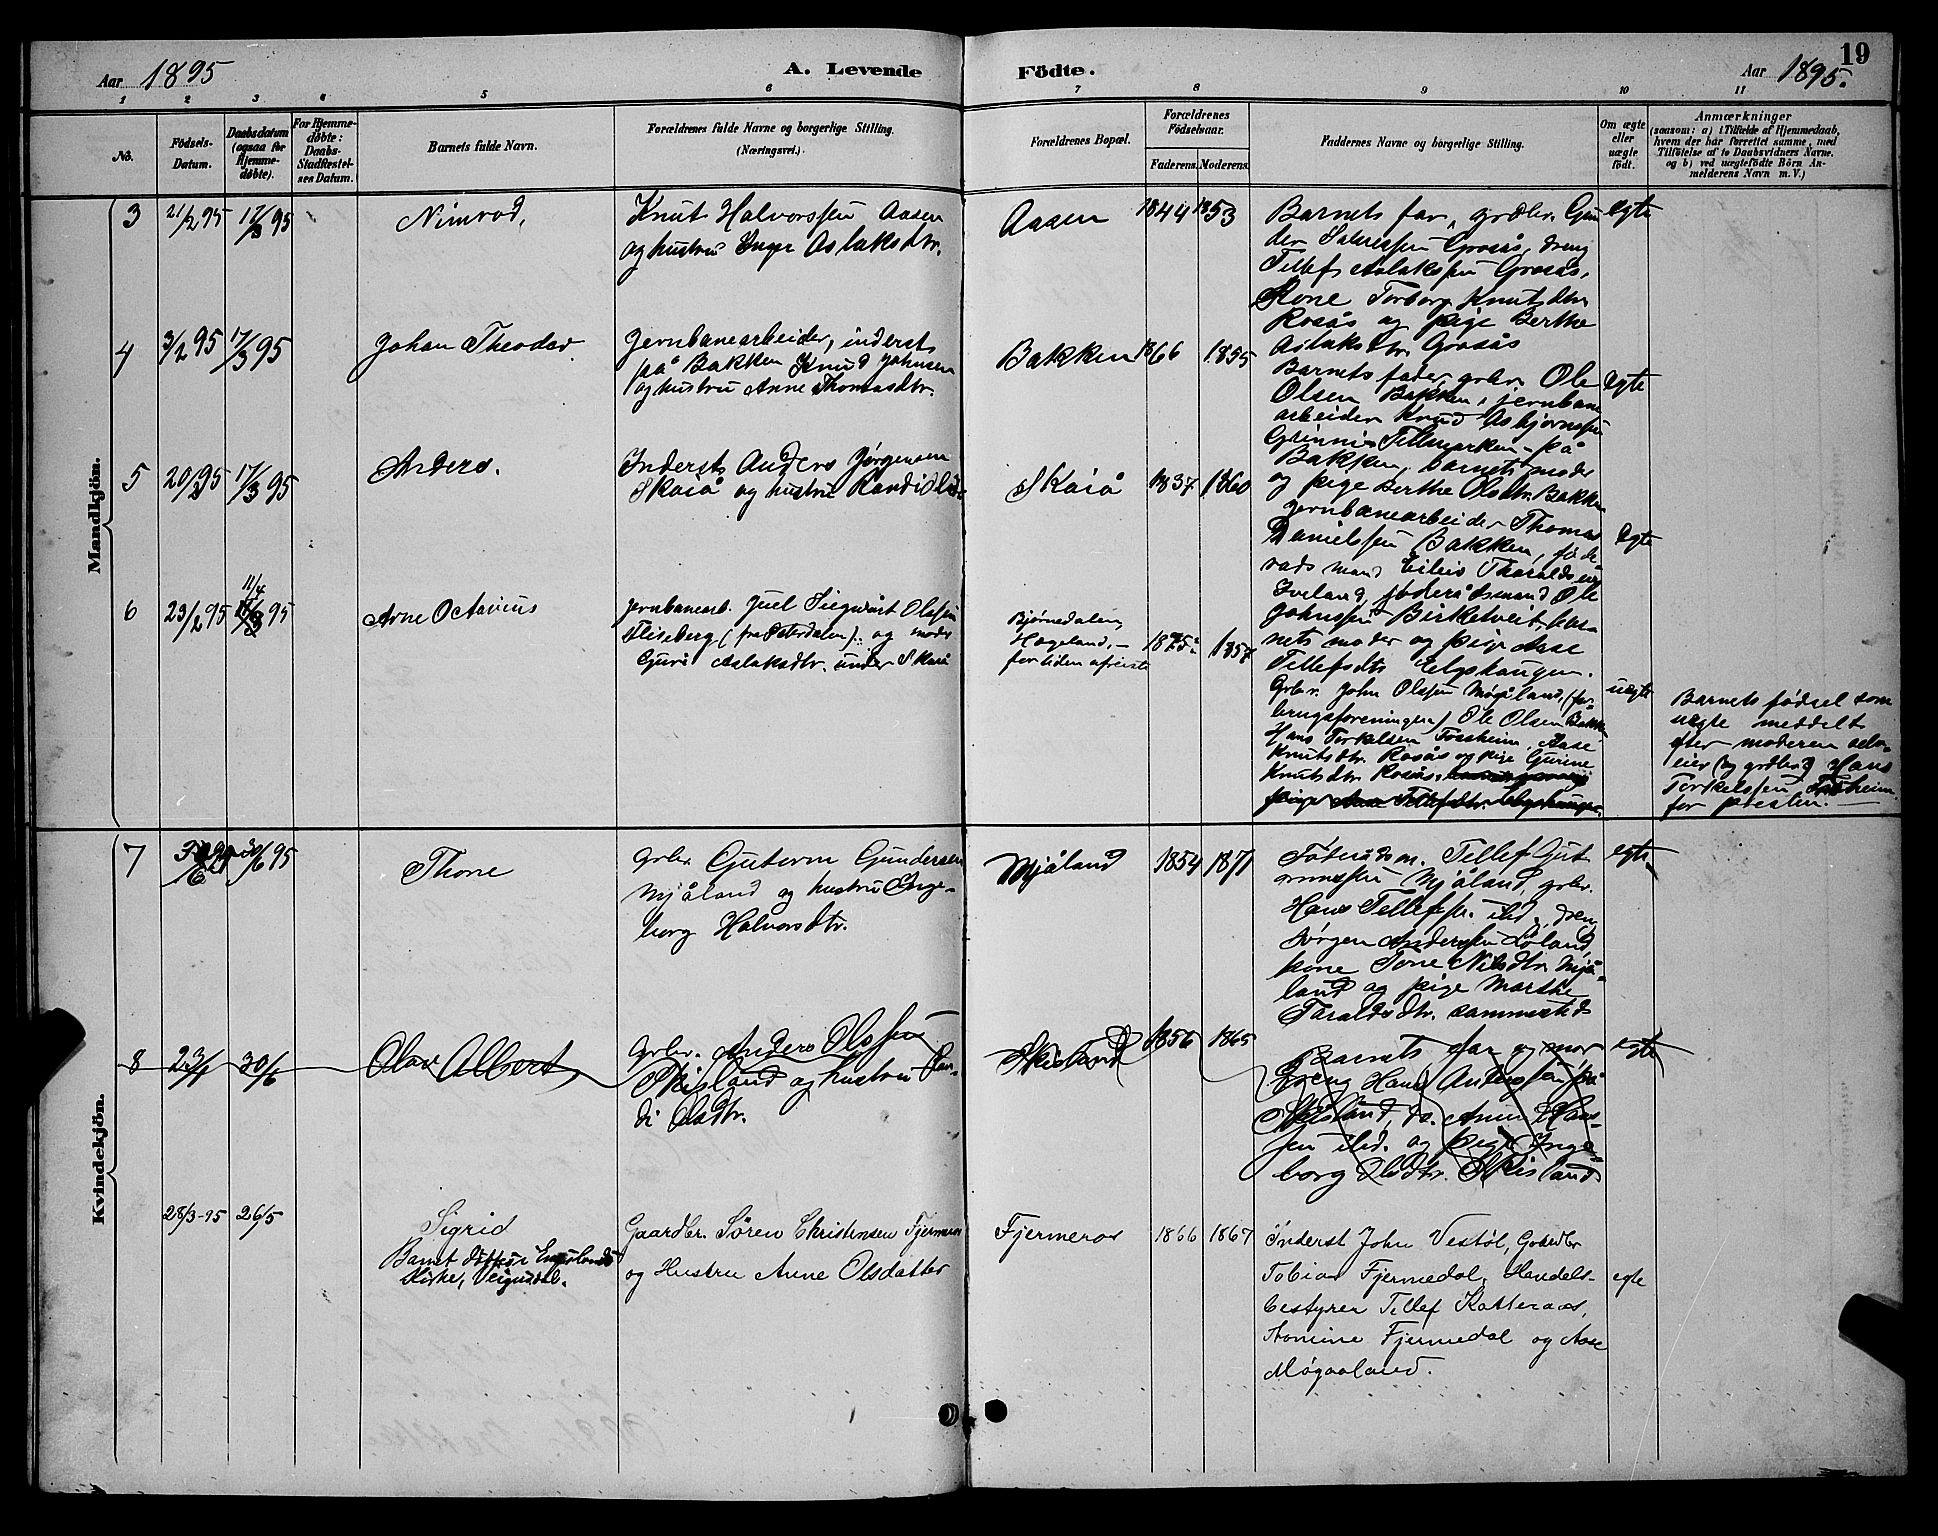 Aar 1895
A. Levende
Födte.
Aar 1895.
19
1 2 3 4 5 6 7 8 9 10 11
No.
Födsels-
Datum.
Daabsdatum
(ogsaa for
Hjemme-
døbte).
For Hjemme-
døbte:
Daabs-
Stadfæstel-
ses Datum.
Barnets fulde Navn.
Forældrenes fulde Navne og borgerlige Stilling.
(Næringsvei.)
Forældrenes Bopæl.
Forældrenes
Födselsaar.
Faderens. Moderens.
Faddernes Navne og borgerlige Stilling.
Om ægte
eller
uægte
født.
Anmærkninger
(saasom: a) i Tilfælde af Hjemmedaab,
hvem der har forrettet samme, med
Tilføielse af to Daabsvidners Navne.
og b) ved uægtefødte Börn An-
melderens Navn m. V.)
Mandkjön.
3
21/2 95
17/3 95
Nimrod,
Knut Halvorssen Aasen
og hustru Inger Aslaksdtr.
Aasen
1844
1853
Barnets far, grdbr. Gun
der Grosås, dreng
Tellef Aslakssen Grosås,
Kone Torborg Knutsdtr
Rosås og pige Berthe
Aslaksdtr. Grosås
ægte
4
3/2 95
17/3 95
Johan Theodor
Jernbanearbeider, inderst
på Bakken Knud Johnsen
og hustru Anne Thomasdtr.
Bakken
1866
1855
Barnets fader, grbr. Ole
Olsen Bakken, jernbane
arbeider Knud Asbjørnssen
Tillemarken på
Bakken, barnets moder
og pige Berthe Olsdtr. Bakken
ægte
5
20/2 95
17/3 95
Anders.
Inderst Anders Jørgensen
Skaiå og hustru Randi
Skaiå
1837
1860
Jernbanearbeider Thomas
Danielssen Bakken, føde
rads mand Eileiv Tharaldssen
Iveland, føderådsmand Ole
Johnssen Birketveit, bar-
nets moder og pige Aase
Tellefsdtr Elgshaugen.
ægte
6
23/2 95
11/4
17/3 95
Arne Octavius
Jernbanearb. Juel Sigwart Olssen
Fliseberg (fra Østerdalen) og moder
Guri Aslaksdtr. under Skaiå
Bjørnedalen,
Hægeland, –
for tiden afreist
1875
1857
Grbr. John Olssen Mogåland, (for-
brugsforeningen) Ole Olsen Bakken
Hans Torkelsen Fossheim, Aase
Knutsdtr. Rosås og pige Gurine
Knutsdtr Rosås,
pige Aase Tellefsdtr. Elgshaugen
uægte
Barnets fødsel som
uægte meddelt
efter moderen selv-
eier (og grdbr.) Hans
Torkelssen Fossheim
for presten. —
Kvindekjön.
7
30/6 95
Thone
Grbr Gutorm Gundersen
Mjåland og hustru Inge-
borg Halvorsdtr.
Mjåland
1854
1871
Føderådsm. Tellef Gut
ormssen Mjåland, grbr.
Hans Tellefssr. ibd, dreng
Jørgen Anderssen Løland,
kone Tone Nilsdtr. Mjå-
land og pige Marthe
Taraldsdtr. sammesteds
ægte
8
30/6
Olav Albert,
Grbr. Anders Olssen
Skisland og hustru Ran-
di Olsdtr.
Skisland
1856
1865
Barnets far og mor
Dreng Hans Anderssen på
Skisland, do. Anen Hans-
sen ibd. og pige Inge-
borg Olsdtr. Skisland
ægte
28/3-95
26/5
Sigrid
Barnet døbt i Engslands
Kirke, Vegusdal.
Gaardbr. Søren Christensen Fjermeros
og Hustru Anne Olsdatter
Fjermeros
1866
1867
Inderst John Vestöl, Gaardbr
Tobias Fjermedal, Handels-
bestyrer Tellef Katteraas,
Fjermedal og Aase
Mogaaland.
egte